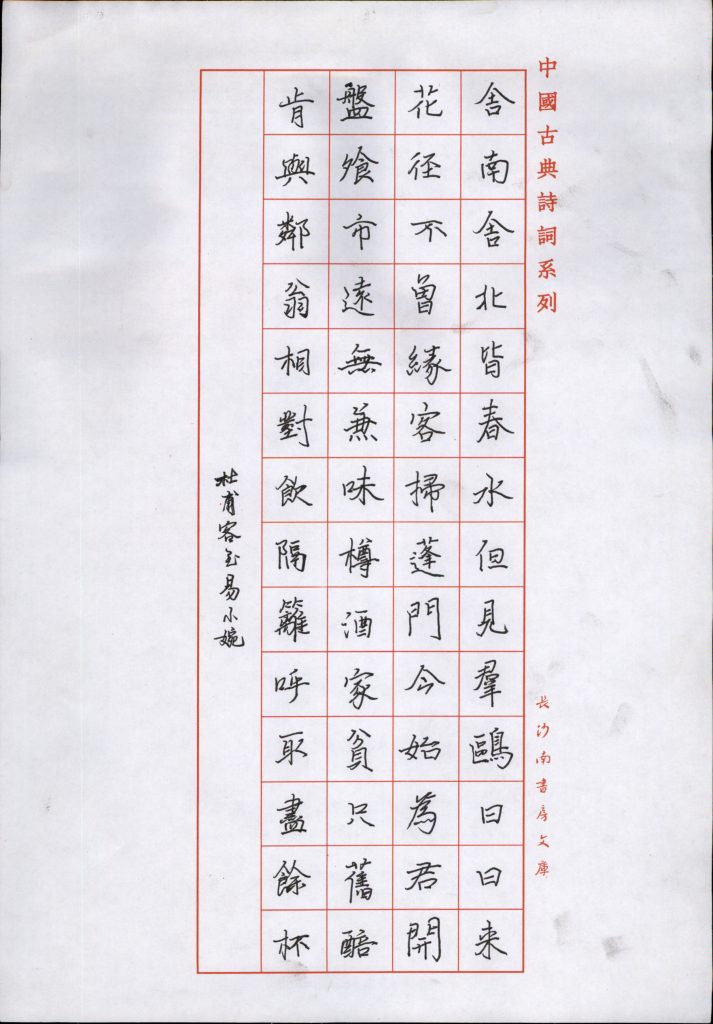 中國古典詩詞系列
長沙南書房文庫
舍南舍北皆春水但見羣鷗日日来
花径不曾緣客掃蓬門今始為君開
盤飧市遠無兼味樽酒家貧只舊醅
肯與鄰翁相對飲隔籬呼取盡餘杯
杜甫客至易小婉